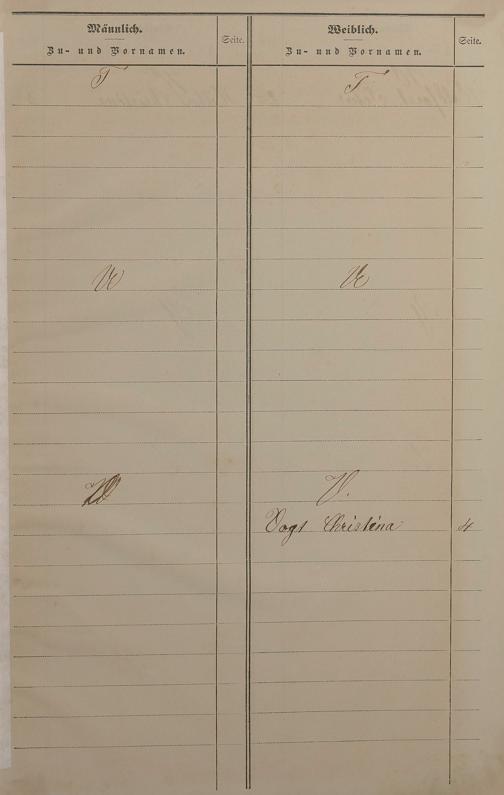 Männlich.
Zu- und Vornamen.
Seite.
Weiblich.
Zu- und Vornamen.
Seite.
T
T
U
U
V.
Vogt Christina 4